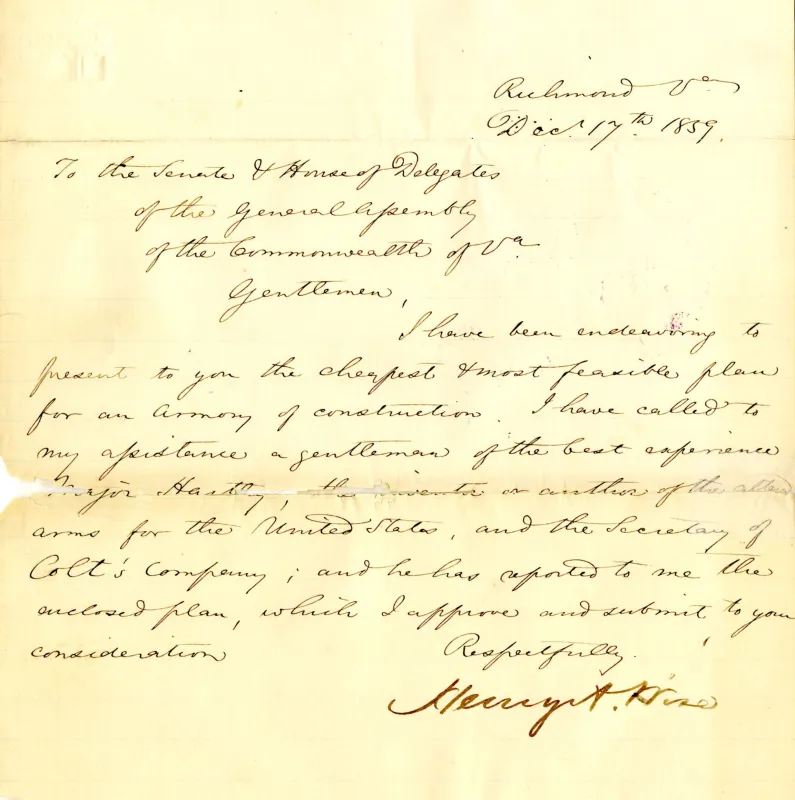 Richmond Va
Dec. 17th 1859.
To the Senate & House of Delegates
of the General Assembly
of the Commonwealth of Va
Gentlemen,
I have been endeavoring to
present to you the cheapest & most feasible plan
for an Armory of construction. I have called to
my assistance a gentleman of the best experience
Major Hartley, the inventor or author of the
arms for the United States, and the Secretary of
Colt's Company; and he has reported to me the
enclosed plan, which I approve and submit to your
consideration
Respectfully.
Henry A. Wise